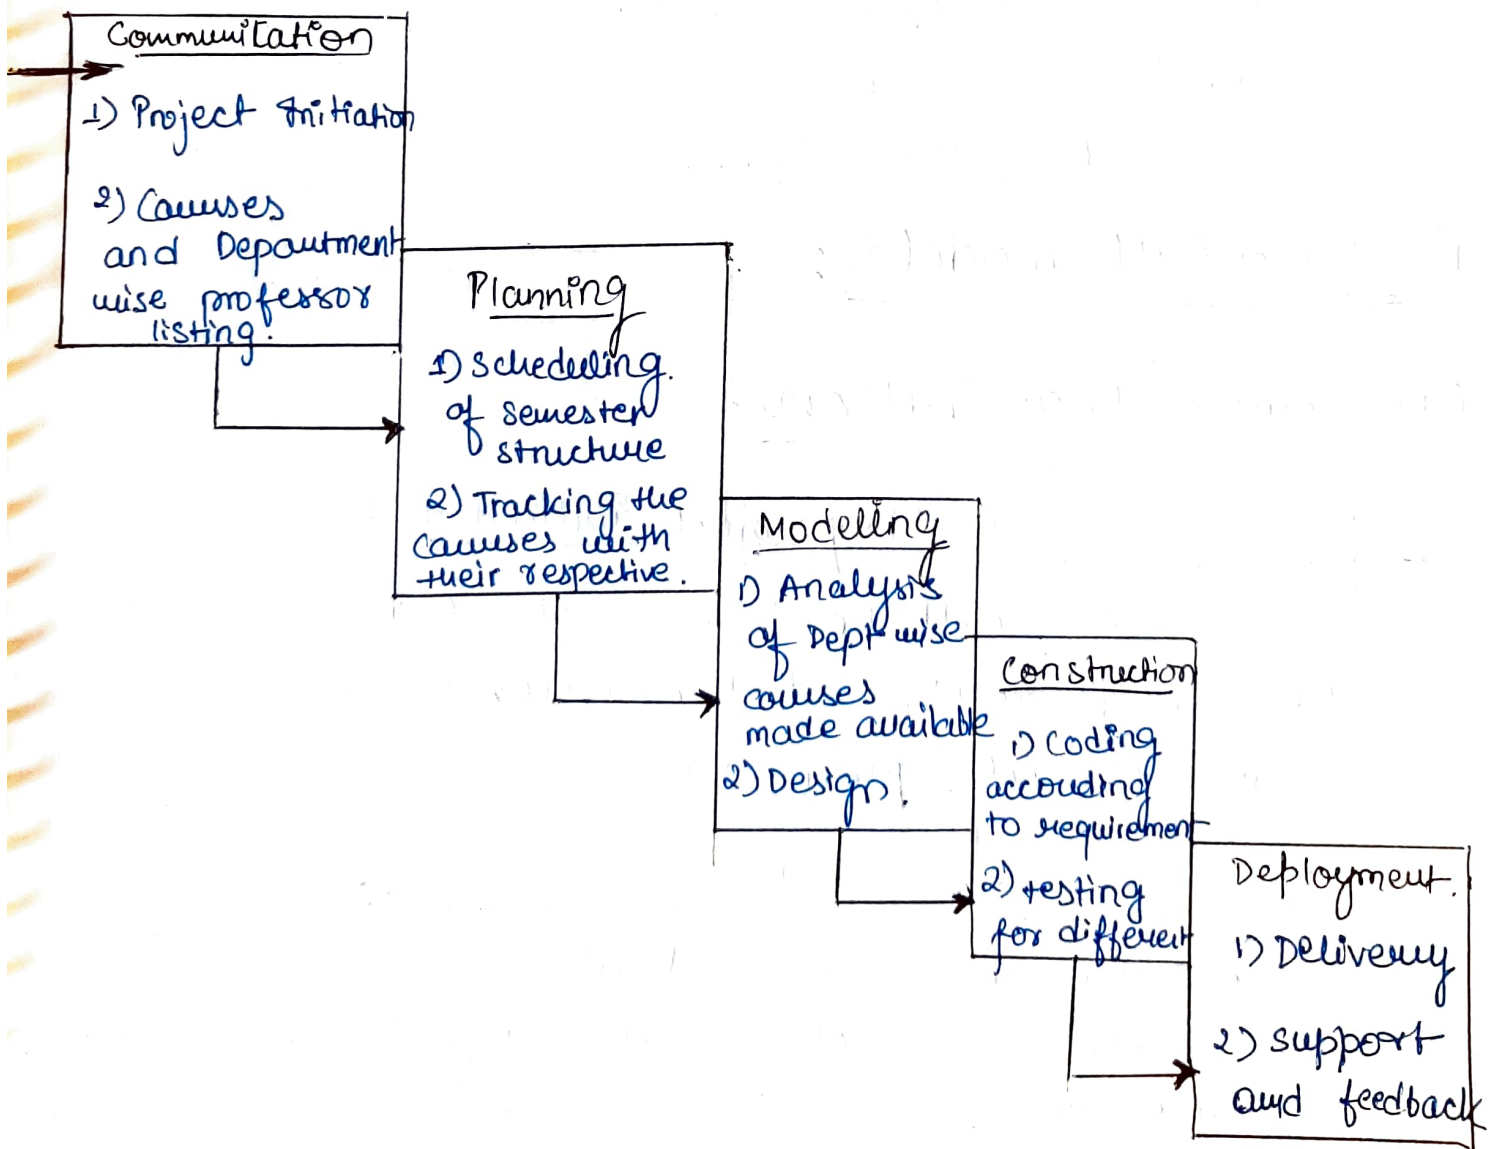 Communication
1) Project Initiation
2) Courses
and Department
wise professor
listing.
Planning
1) Scheduling.
of semester
structure
2) Tracking the
courses with
their respective.
Modelling
1) Analysis
of Dept wise
courses
made available
2) Design.
Construction
1) Coding
according
to requirement
2) testing
for different
Deployment.
1) Delivery
2) support
and feedback